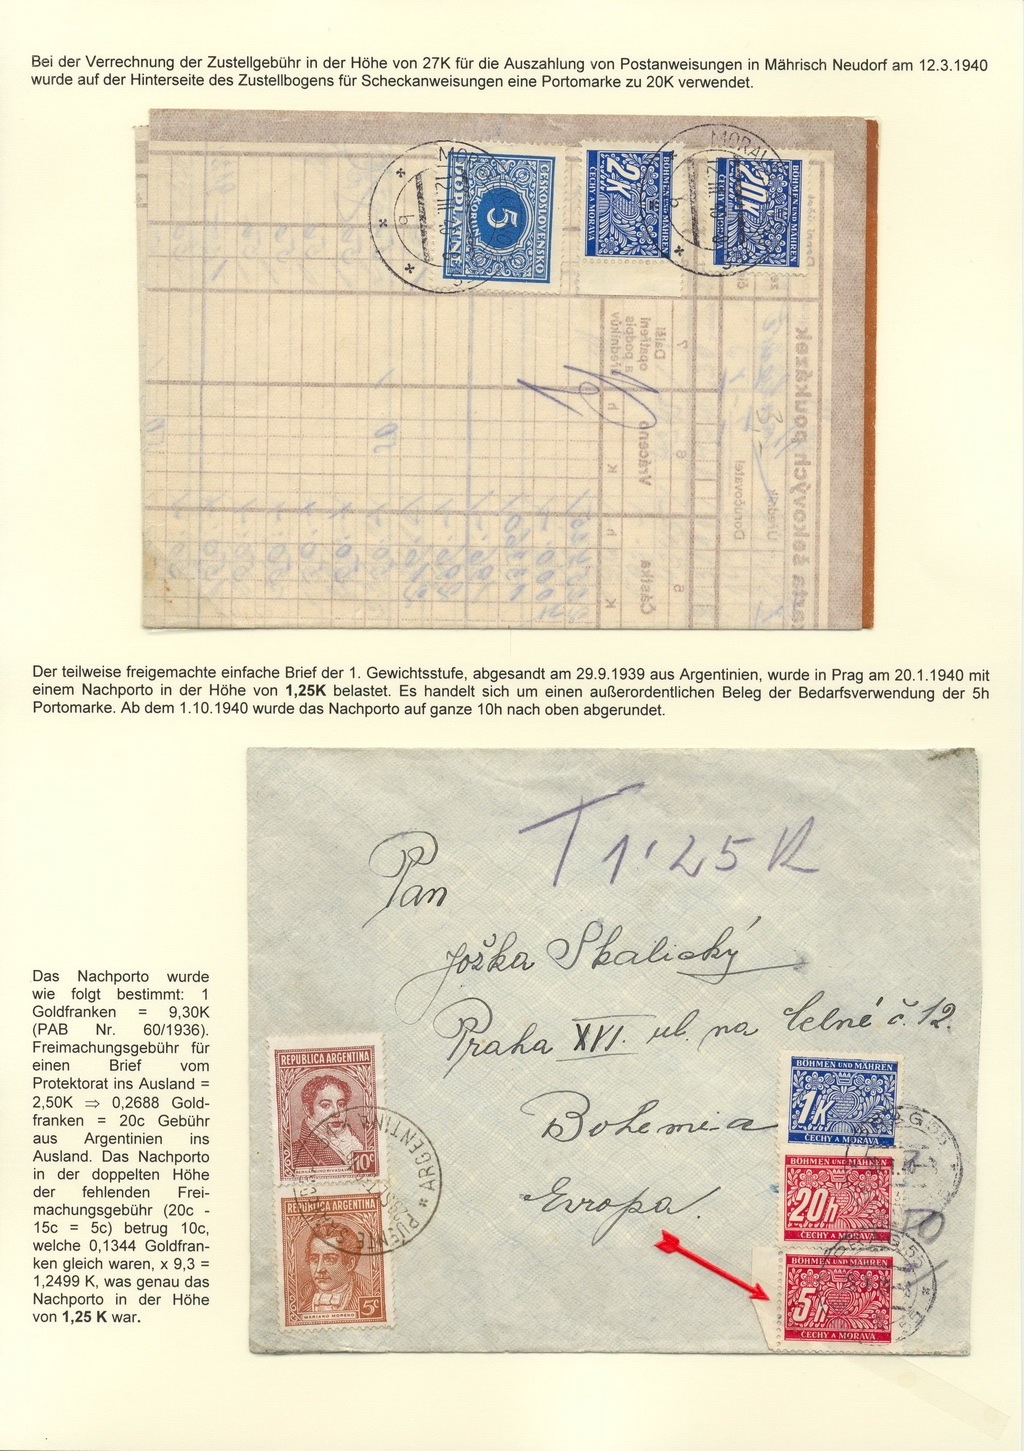 Bei der Verrechnung der Zustellgebühr in der Höhe von 27K für die Auszahlung von Postanweisungen in Mährisch Neudorf am 12.3.1940
wurde auf der Hinterseite des Zustellbogens für Scheckanweisungen eine Portomarke zu 20K verwendet.
ČESKOSLOVENSKO
DOPLATNÉ
KORUN
5
BÖHMEN UND MÄHREN
2K
ČECHY A MORAVA
BÖHMEN UND MÄHREN
20K
ČECHY A MORAVA
Další
opatření
a podpis
úředníků
7
Vráceno
K h
6
Částka
K h
5
Doručovatel
Úředník
karta šekových poukázek
Der teilweise freigemachte einfache Brief der 1. Gewichtsstufe, abgesandt am 29.9.1939 aus Argentinien, wurde in Prag am 20.1.1940 mit
einem Nachporto in der Höhe von 1,25K belastet. Es handelt sich um einen außerordentlichen Beleg der Bedarfsverwendung der 5h
Portomarke. Ab dem 1.10.1940 wurde das Nachporto auf ganze 10h nach oben abgerundet.
T 1·25 K
Pan
Jožka Skalický
Praha XVI. ul. na Celné č. 12.
Bohemia
Evropa.
REPUBLICA ARGENTINA
10c
REPUBLICA ARGENTINA
5c
MARIANO MORENO
ARGENTINA
BÖHMEN UND MÄHREN
1K
ČECHY A MORAVA
BÖHMEN UND MÄHREN
20h
ČECHY A MORAVA
BÖHMEN UND MÄHREN
5h
ČECHY A MORAVA
Das Nachporto wurde
wie folgt bestimmt: 1
Goldfranken = 9,30K
(PAB Nr. 60/1936).
Freimachungsgebühr für
einen Brief vom
Protektorat ins Ausland =
2,50K ⇒ 0,2688 Gold-
franken = 20c Gebühr
aus Argentinien ins
Ausland. Das Nachporto
in der doppelten Höhe
der fehlenden Frei-
machungsgebühr (20c -
15c = 5c) betrug 10c,
welche 0,1344 Goldfran-
ken gleich waren, x 9,3 =
1,2499 K, was genau das
Nachporto in der Höhe
von 1,25 K war.